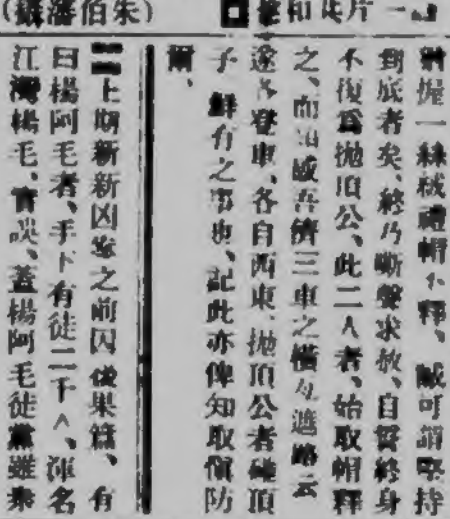 (朱伯藩攝)
握一絲絨禮帽不釋、誠可謂堅持
到底者矣、終乃嘶聲求赦、自誓終身
不復爲拋頂公、此二人者、始取帽釋
之、而 咸吾儕三車之橫 進路云
途各登車、各自西東、拋頂公者碰頂
子、鮮有之事也、記此亦俾知取 防
爾、
上期新新凶 之前因後果篇、有
曰楊阿毛者、手下有徒二千人、渾名
江灣楊毛、實誤、蓋楊阿毛徒黨雖衆